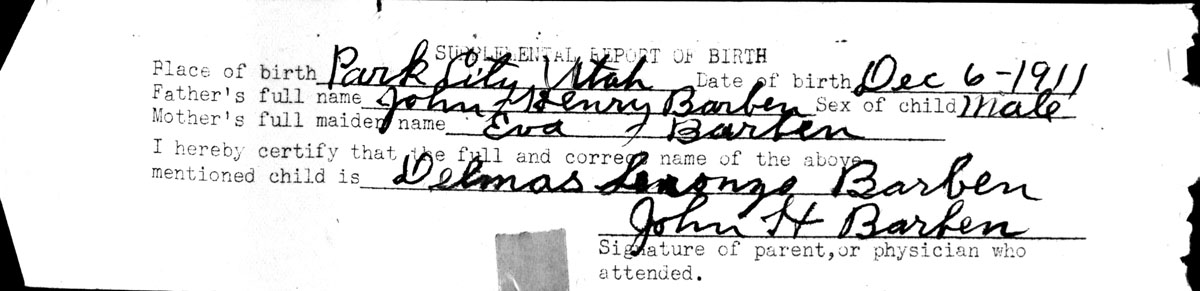 SUPPLEMENTAL REPORT OF BIRTH
Place of birth Park City Utah Date of birth Dec 6-1911
Father's full name John Henry Barben Sex of child Male
Mother's full maiden name Eva Barben
I hereby certify that the full and correct name of the above
mentioned child is Delmas Barben
John H Barben
Signature of parent, or physician who
attended.